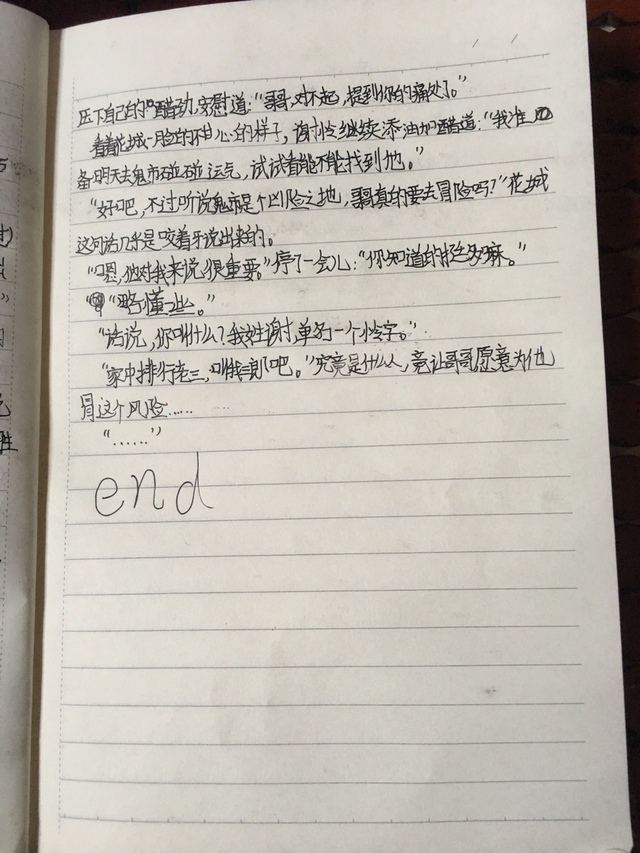 压下自己的醋劲,安慰道:“哥哥,对不起,提到你的痛处了。”
看着花城一脸的不甘心的样子,谢怜继续添油加醋道:“我准
备明天去鬼市碰碰运气,试试看能不能找到他。”
“好吧,不过听说鬼市是个凶险之地,哥哥真的要去冒险吗?”花城
这句话几乎是咬着牙说出来的。
“嗯,他对我来说很重要。”停了一会儿:“你知道的好多嘛。”
“略懂一些。”
“话说,你叫什么?我姓谢,单名一个怜字。”
“家中排行老三,叫我三郎吧。”究竟是什么人,竟让哥哥愿意为他
冒这个风险……
“……”
end
胜